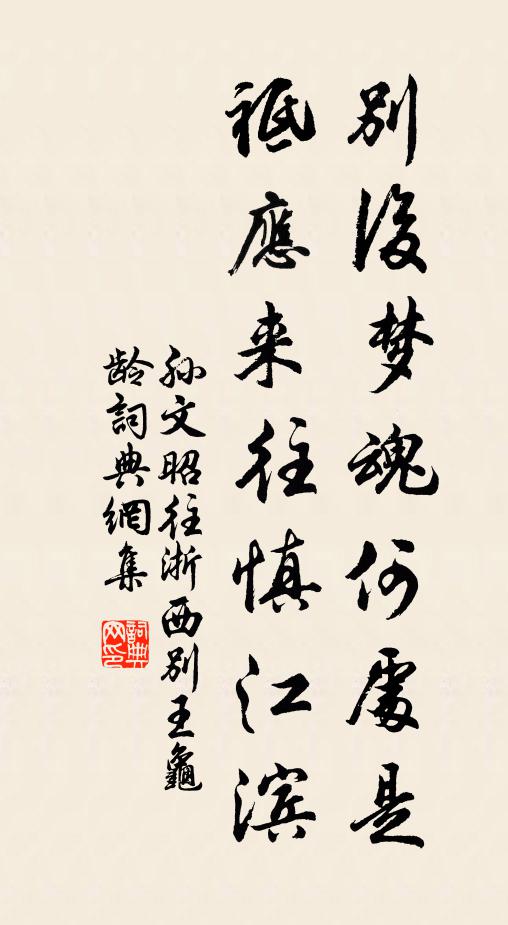 别後梦魂何處是
祗應来往慎江滨
孙文昭往浙西别王龜
龄詞典網集
詞典网印